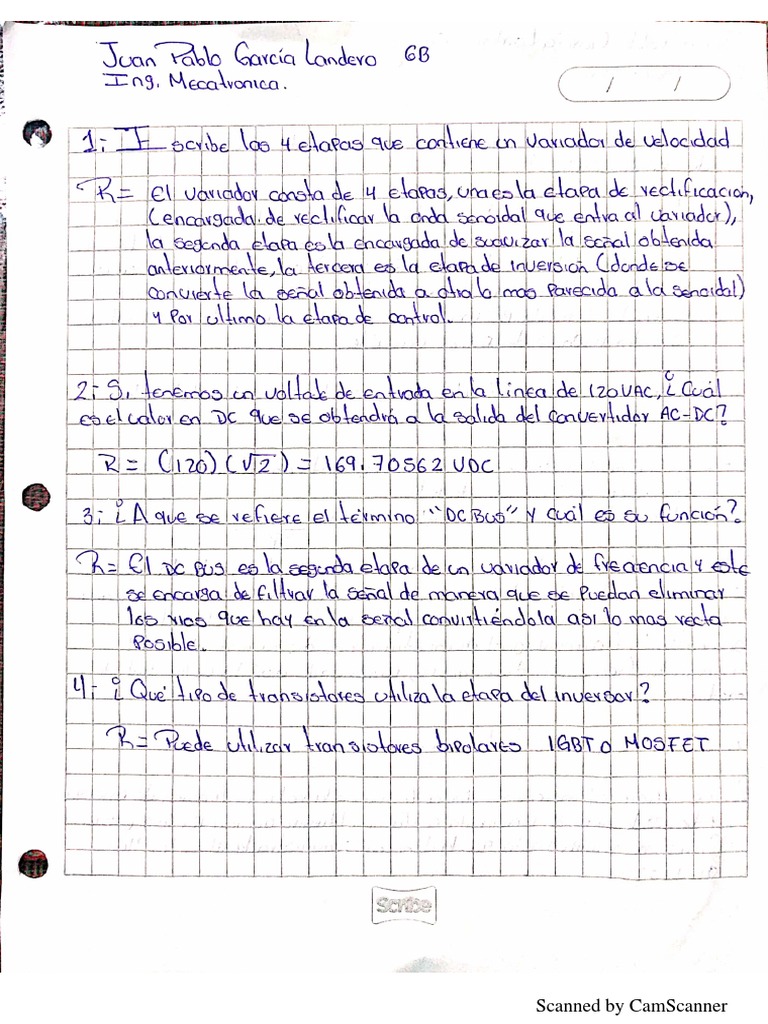 Juan Pablo García Landero 6B
Ing. Mecatronica.
/ /
1: Escribe las 4 etapas que contiene un variador de velocidad
R= El variador consta de 4 etapas, una es la etapa de rectificacion,
(encargada de rectificar la onda senoidal que entra al variador),
la segunda etapa es la encargada de suavizar la señal obtenida
anteriormente, la tercera es la etapa de inversion (donde se
convierte la señal obtenida a otra lo mas parecida a la senoidal)
y por ultimo la etapa de control.
2:- Si tenemos un voltake de entrada en la linea de 120 VAC, ¿Cuál
es el valor en DC que se obtendrá a la salida del convertidor AC-DC?
R= (120)(√2) = 169.70562 VDC
3: ¿A que se refiere el término "DC Bus" y cuál es su función?
R= El DC BUS es la segunda etapa de un variador de frecuencia y este
se encarga de filtrar la señal de manera que se puedan eliminar
los rizos que hay en la señal convirtiéndola asi lo mas recta
posible.
4:- ¿Qué tipo de transistores utiliza la etapa del inversor?
R= Puede utilizar transistores bipolares IGBT o MOSFET
Scribe
Scanned by CamScanner